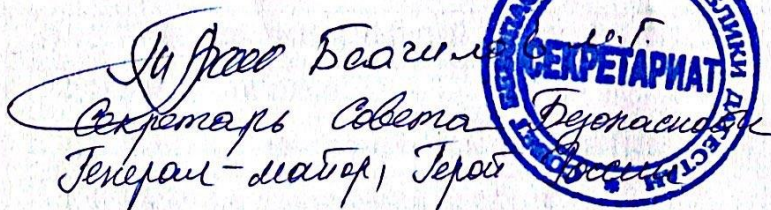 Баачилов М.Г.
Секретарь Совета Безопасности
Генерал-майор, Герой России
СЕКРЕТАРИАТ
СОВЕТ БЕЗОПАС
БЛИКИ ДАГЕСТАН